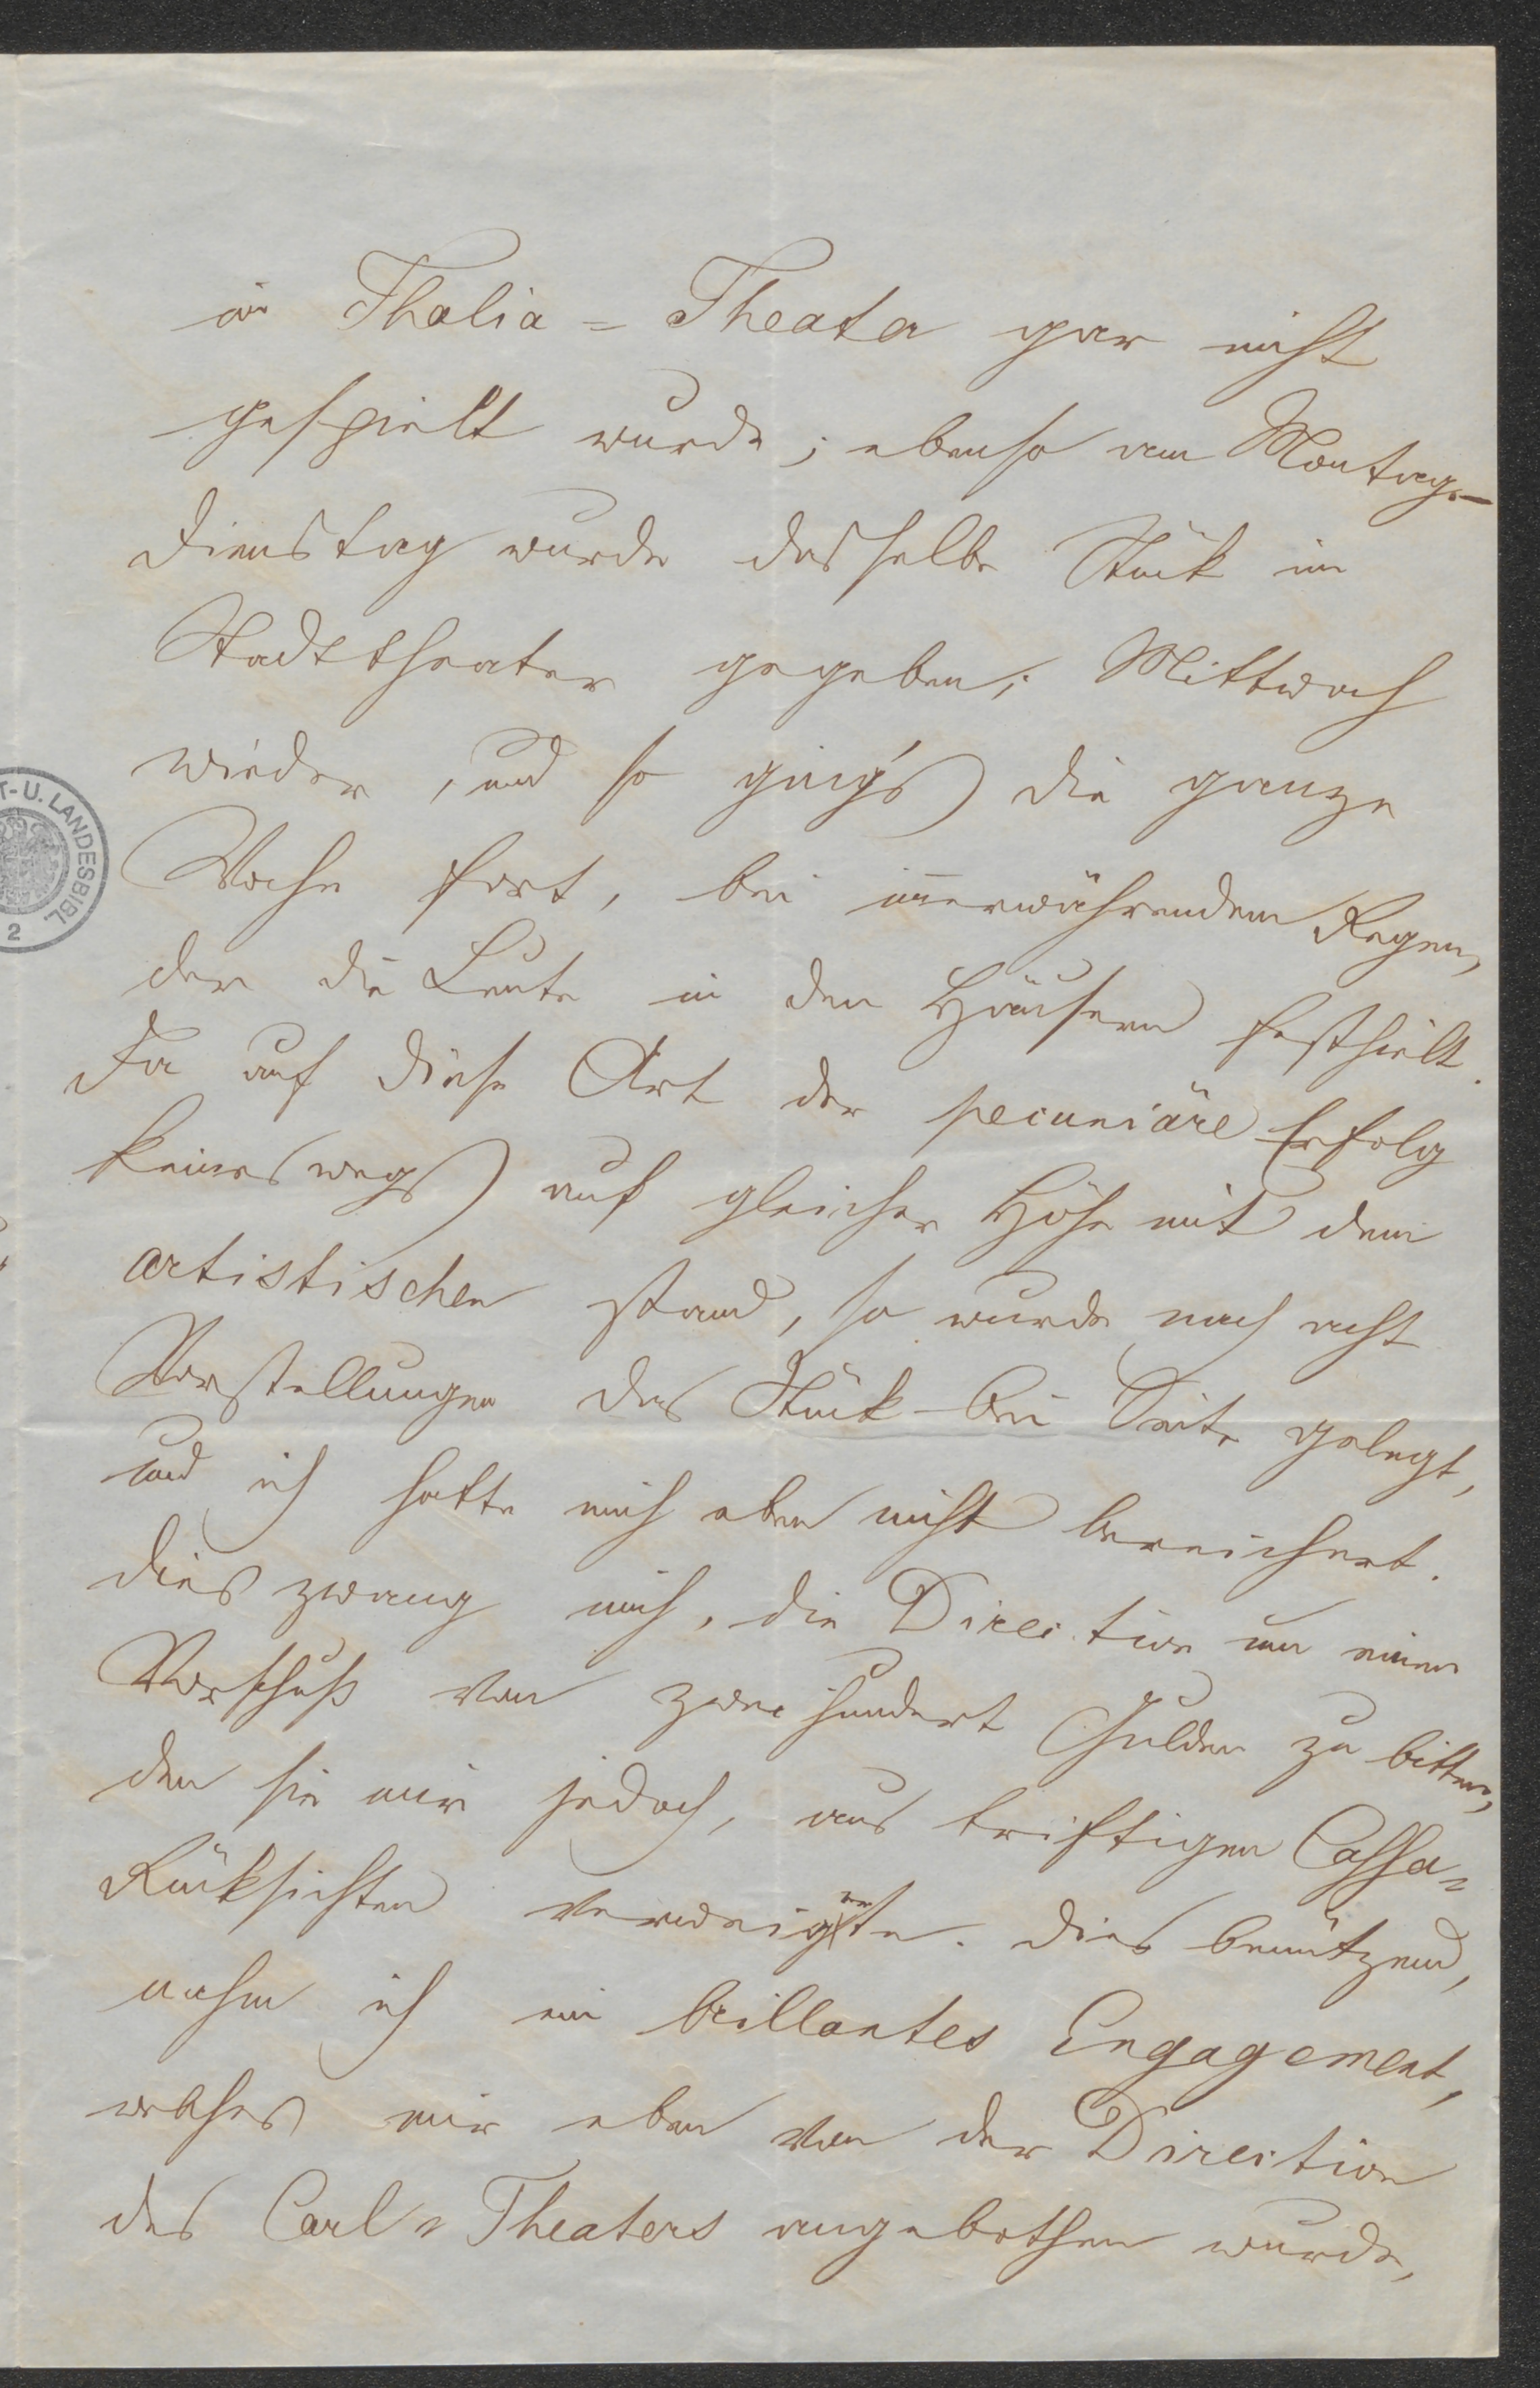 im Thalia=Theater gar nicht
gespielt wurde; ebenso am Montag.–
Dienstag wurde dasselbe Stük im
Stadttheater gegeben; Mittwoch
wieder, und so ging's die ganze
Woche fort, bei im̅erwährendem Regen,
der die Leute in den Häusern festhielt.
Da auf diese Art der pecuniäre Erfolg
keineswegs auf gleicher Höhe mit dem
artistischen stand, so wurde nach acht
Vorstellungen das Stük bei Seite gelegt,
und ich hatte mich eben nicht bereichert.
Dies zwang mich, die Direction um einen
Vorschuß von zweihundert Gulden zu bitten,
den sie mir jedoch, aus triftigen Cassa=
Rüksichten verweigerte. Dies benützend,
nahm ich ein brillantes Engagement,
welches mir eben von der Direction
des Carl=Theaters angebothen wurde,
T-U. LANDESBIBL.
2